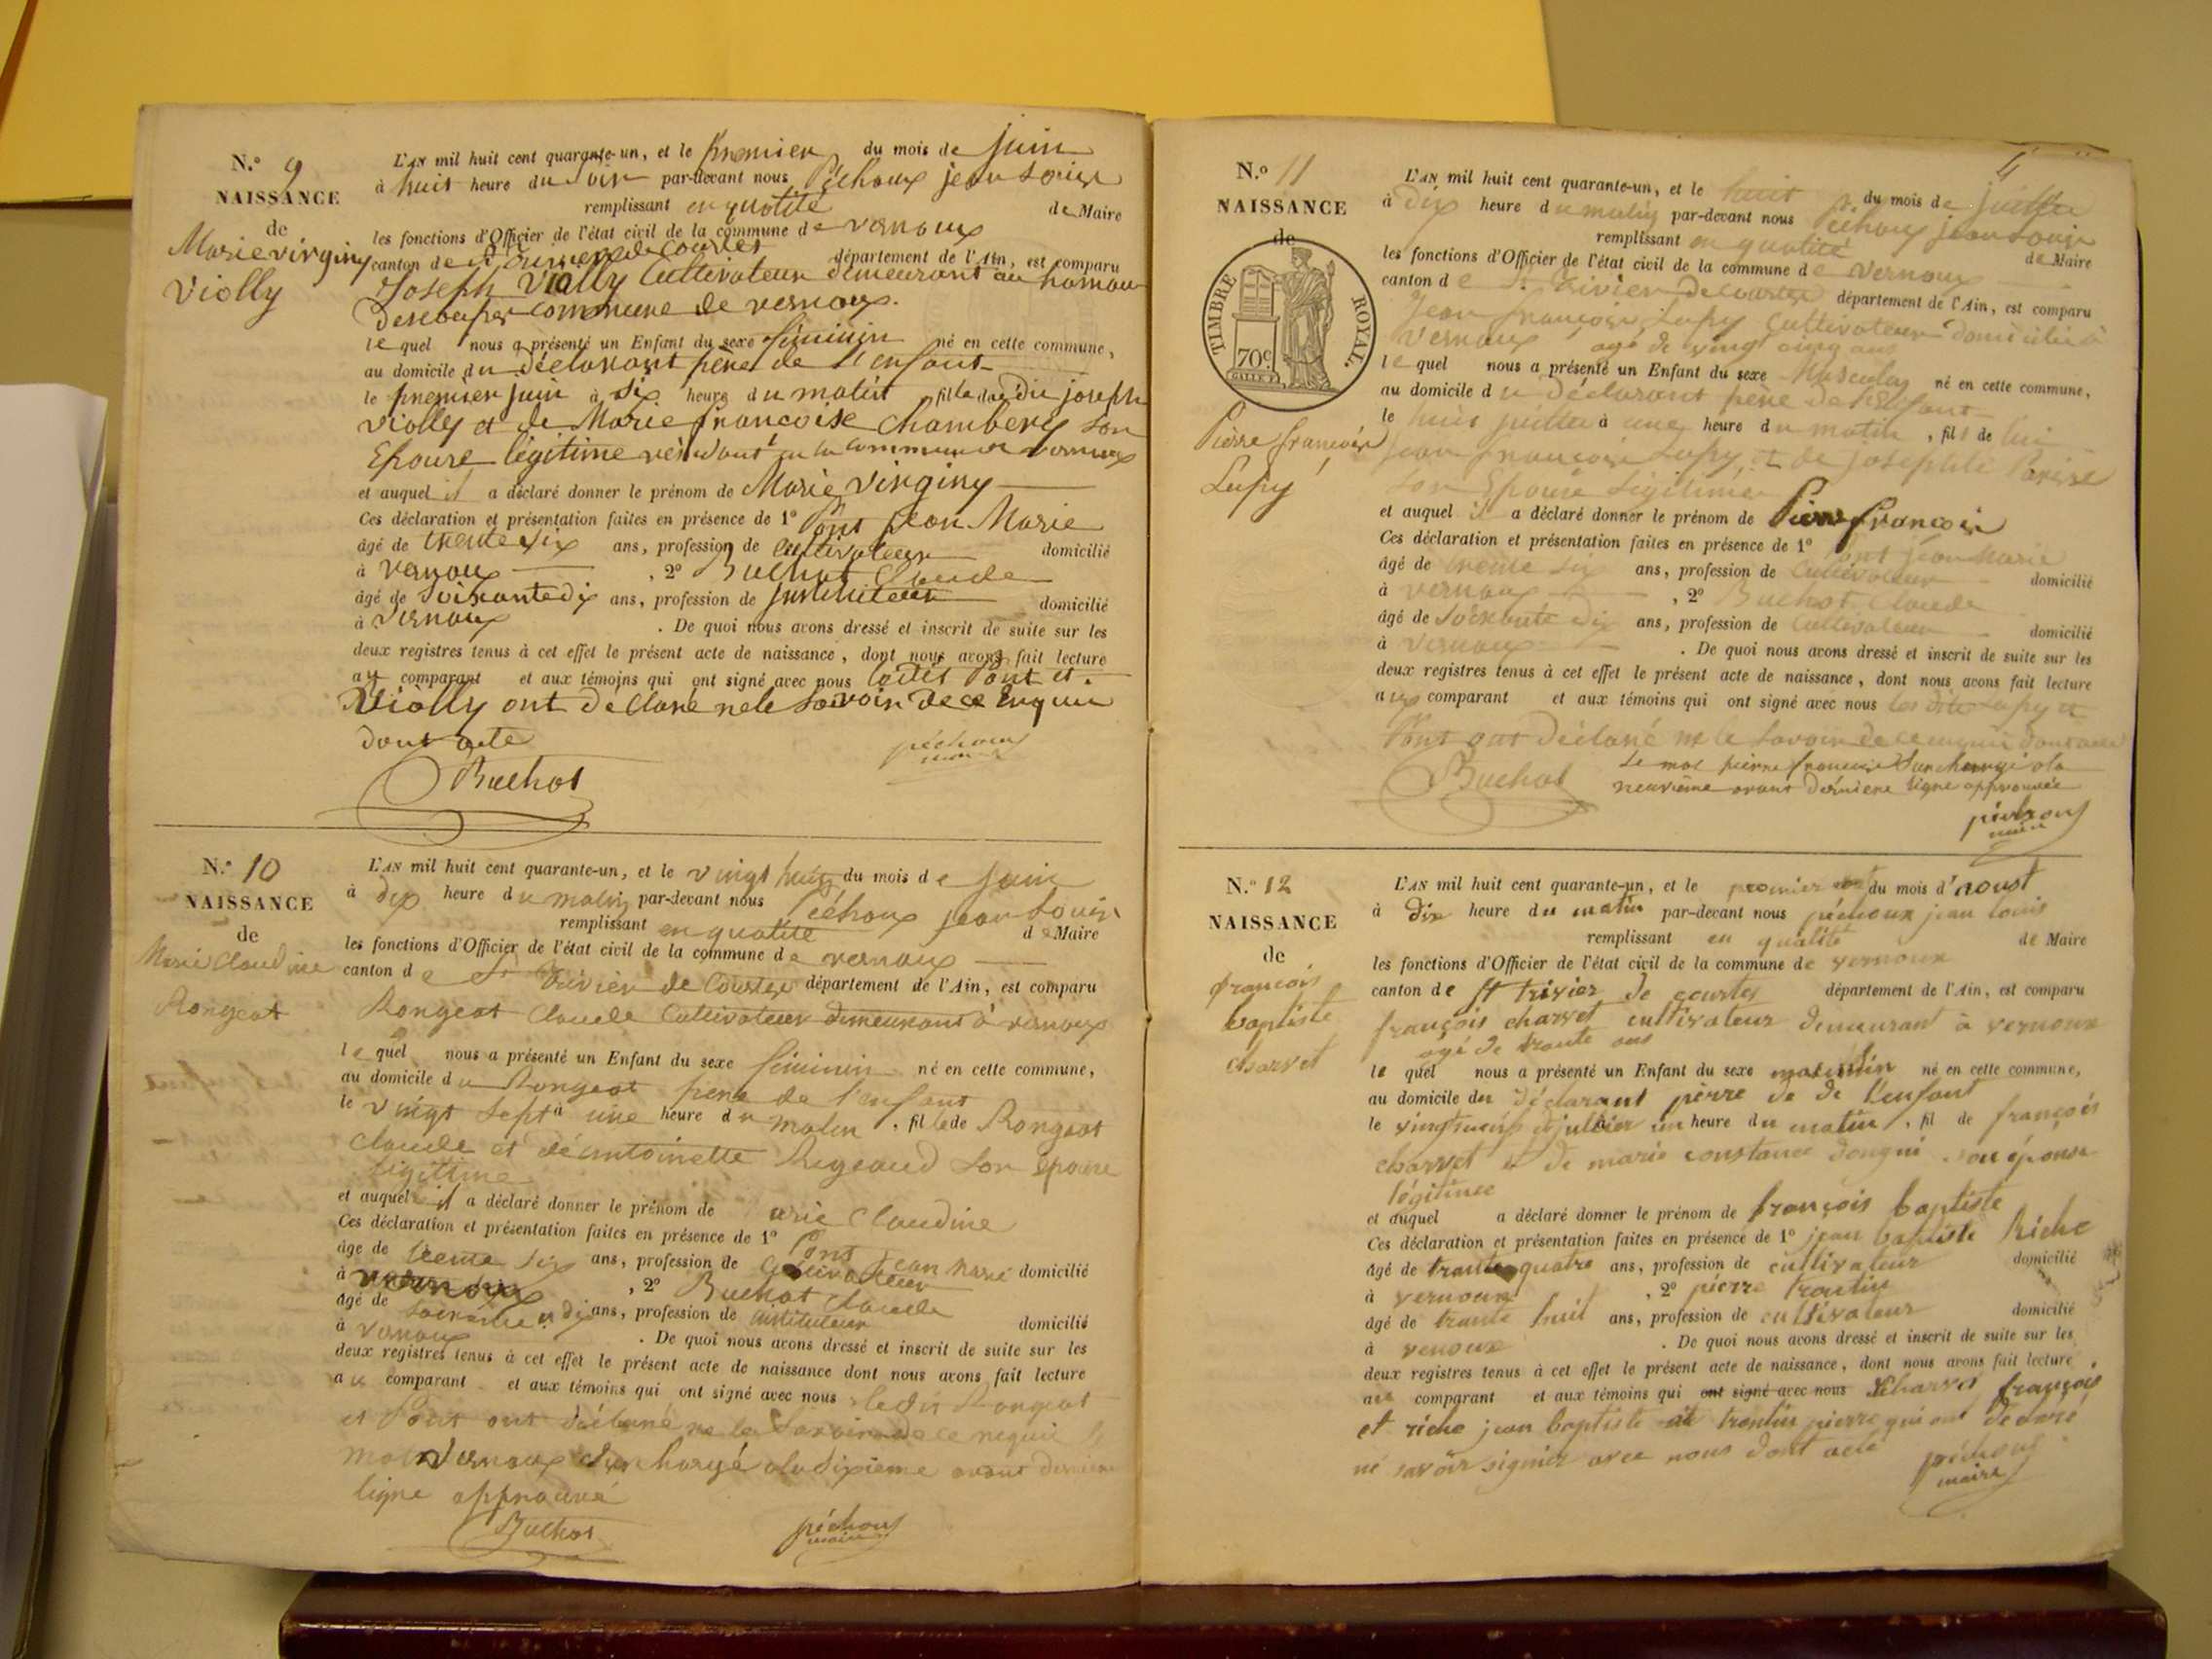 N.° 9
NAISSANCE
de
Marie virginy
Violly
L'AN mil huit cent quarante-un, et le premier du mois de juin
à huit heure du soir par-devant nous Péchoux jean Louis
remplissant en qualité de Maire
les fonctions d'Officier de l'état civil de la commune de vernoux
canton de département de l'Ain, est comparu
Joseph Violly Cultivateur demeurant au hamau
commune de vernoux.
lequel nous a présenté un Enfant du sexe féminin né en cette commune,
au domicile du déclarant père de l'enfant
le premier juin à six heure du matin fille du dit joseph
Violly et de Marie françoise Chambery son
Epouse légitime résidant en la commune de vernoux
et auquel il a déclaré donner le prénom de Marie Virginy
Ces déclaration et présentation faites en présence de 1° Pont jean Marie
âgé de trente six ans, profession de cultivateur domicilié
à vernoux , 2° Buchot Claude
âgé de soixante dix ans, profession de instituteur domicilié
à vernoux . De quoi nous avons dressé et inscrit de suite sur les
deux registres tenus à cet effet le présent acte de naissance, dont nous avons fait lecture
au comparant et aux témoins qui ont signé avec nous Pont et.
Violly ont déclaré ne le savoir de ce enquis
dont acte
Buchot
péchoux
maire
N.° 10
NAISSANCE
de
Marie Claudine
Rongeat
L'AN mil huit cent quarante-un, et le vingt huit du mois de juin
à dix heure du matin par-devant nous Péchoux jean Louis
remplissant en qualité de Maire
les fonctions d'Officier de l'état civil de la commune de vernoux
canton de St trivier de Courtes département de l'Ain, est comparu
Rongeat Claude Cultivateur demeurant à vernoux
lequel nous a présenté un Enfant du sexe féminin né en cette commune,
au domicile du Rongeat père de l'enfant
le vingt sept à une heure du matin, fille de Rongeat
Claude et de antoinette son épouse
légitime
et auquel il a déclaré donner le prénom de arie Claudine
Ces déclaration et présentation faites en présence de 1° Pont jean Marie
âge de trente six ans, profession de Cultivateur domicilié
à vernoux , 2° Buchot Claude
âgé de soixante dix ans, profession de instituteur domicilié
à vernoux . De quoi nous avons dressé et inscrit de suite sur les
deux registres tenus à cet effet le présent acte de naissance dont nous avons fait lecture
au comparant et aux témoins qui ont signé avec nous ledit Rongeat
et Pont ont déclaré ne le savoir de ce requis le
mot vernoux surchargé a la dixieme avant derniere
ligne approuvé
Buchot
péchoux
maire
4
N.° 11
NAISSANCE
de
TIMBRE ROYAL.
70c.
Pierre françois
Lupy
L'AN mil huit cent quarante-un, et le huit du mois de juillet
à dix heure du matin par-devant nous Péchoux jean Louis
remplissant en qualité de Maire
les fonctions d'Officier de l'état civil de la commune de vernoux
canton de St trivier de courtes département de l'Ain, est comparu
Jean françois Lupy Cultivateur domicilié à
vernoux agé de vingt cinq ans
lequel nous a présenté un Enfant du sexe Masculin né en cette commune,
au domicile du déclarant père de l'enfant
le huit juillet à une heure du matin, fils de lui
jean françois Lupy, et de josephte
son Epouse légitime
et auquel il a déclaré donner le prénom de Pierre françois
Ces déclaration et présentation faites en présence de 1° Pont jean Marie
âgé de trente six ans, profession de Cultivateur domicilié
à vernoux , 2° Buchot Claude
âgé de soixante dix ans, profession de Cultivateur domicilié
à vernoux . De quoi nous avons dressé et inscrit de suite sur les
deux registres tenus à cet effet le présent acte de naissance, dont nous avons fait lecture
aux comparant et aux témoins qui ont signé avec nous les dits Lupy et
Pont ont déclaré ne le savoir de ce enquis dont acte
Le mot pierre françois surchargé a la
neuvième avant dernière ligne approuvée
Buchot
péchoux
maire
N.° 12
NAISSANCE
de
françois
baptiste
charvet
L'AN mil huit cent quarante-un, et le premier du mois d'aoust
à dix heure du matin par-devant nous péchoux jean louis
remplissant en qualité de Maire
les fonctions d'Officier de l'état civil de la commune de vernoux
canton de st trivier de courtes département de l'Ain, est comparu
françois charvet cultivateur demeurant à vernoux
agé de trante ans
lequel nous a présenté un Enfant du sexe né en cette commune,
au domicile du déclarant pierre de de l'enfant
le heure du matin, fil de françois
charvet et de marie constance son épouse
légitime
et auquel a déclaré donner le prénom de françois baptiste
Ces déclaration et présentation faites en présence de 1° jean baptiste Riche
âgé de trante quatre ans, profession de cultivateur domicilié
à vernoux , 2° pierre trontin
âgé de trante huit ans, profession de cultivateur domicilié
à venoux . De quoi nous avons dressé et inscrit de suite sur les
deux registres tenus à cet effet le présent acte de naissance, dont nous avons fait lecture
au comparant et aux témoins qui ont signé avec nous charvet françois
et riche jean baptiste et trontin pierre qui ont déclaré
né savoir signier avec nous dont acte
péchoux
maire